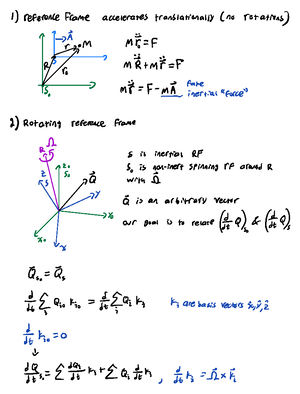 1) reference frame accelerates translationally (no rotations)
A
r
M
R
r₀
S
S₀
m r̈₀ = F
m R̈ + m r̈ = F
m r̈ = F - m A
fake
inertial "force"
2) Rotating reference frame
R
Ω
z
z₀
S₀
S
Q
y
x₀
x
S is inertial RF
S₀ is non-inert spinning RF around R
with Ω
Q is an arbitrary vector
our goal is to relate (d/dt Q)S₀ & (d/dt Q)S
Q S₀ = Q S
d/dt Σ Q i₀ K i₀ = d/dt Σ Q i K i
K i are basis vectors x̂, ŷ, ẑ
d/dt K i₀ = 0
↓
dQ/dt S₀ = Σ dQi/dt K i + Σ Q i d/dt K i , d/dt K i = Ω × K i